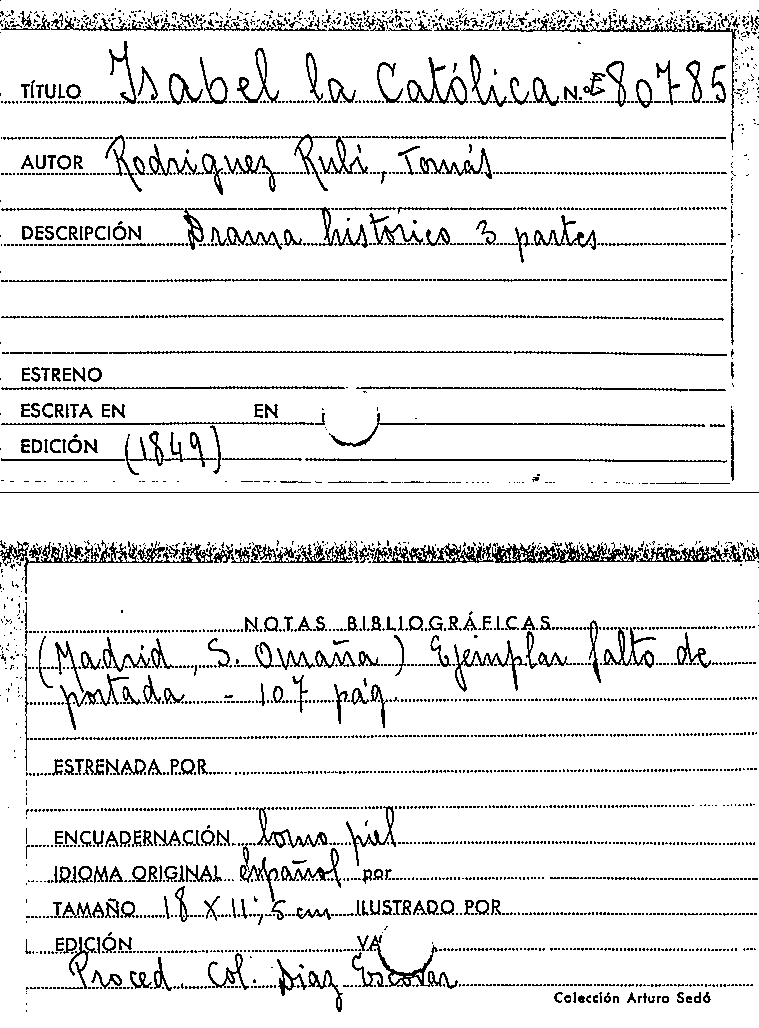 TÍTULO Isabel la Católica N.º 80785
AUTOR Rodriguez Rubí, Tomás
DESCRIPCIÓN Drama histórico 3 partes
ESTRENO
ESCRITA EN EN
EDICIÓN (1849)
NOTAS BIBLIOGRÁFICAS
(Madrid, S. Omaña) Ejemplar falto de
portada - 107 pág.
ESTRENADA POR
ENCUADERNACIÓN lomo piel
IDIOMA ORIGINAL español por
TAMAÑO 18 X 11,5 cm ILUSTRADO POR
EDICIÓN VA
Proced. Col. Diaz Escovar
Colección Arturo Sedó